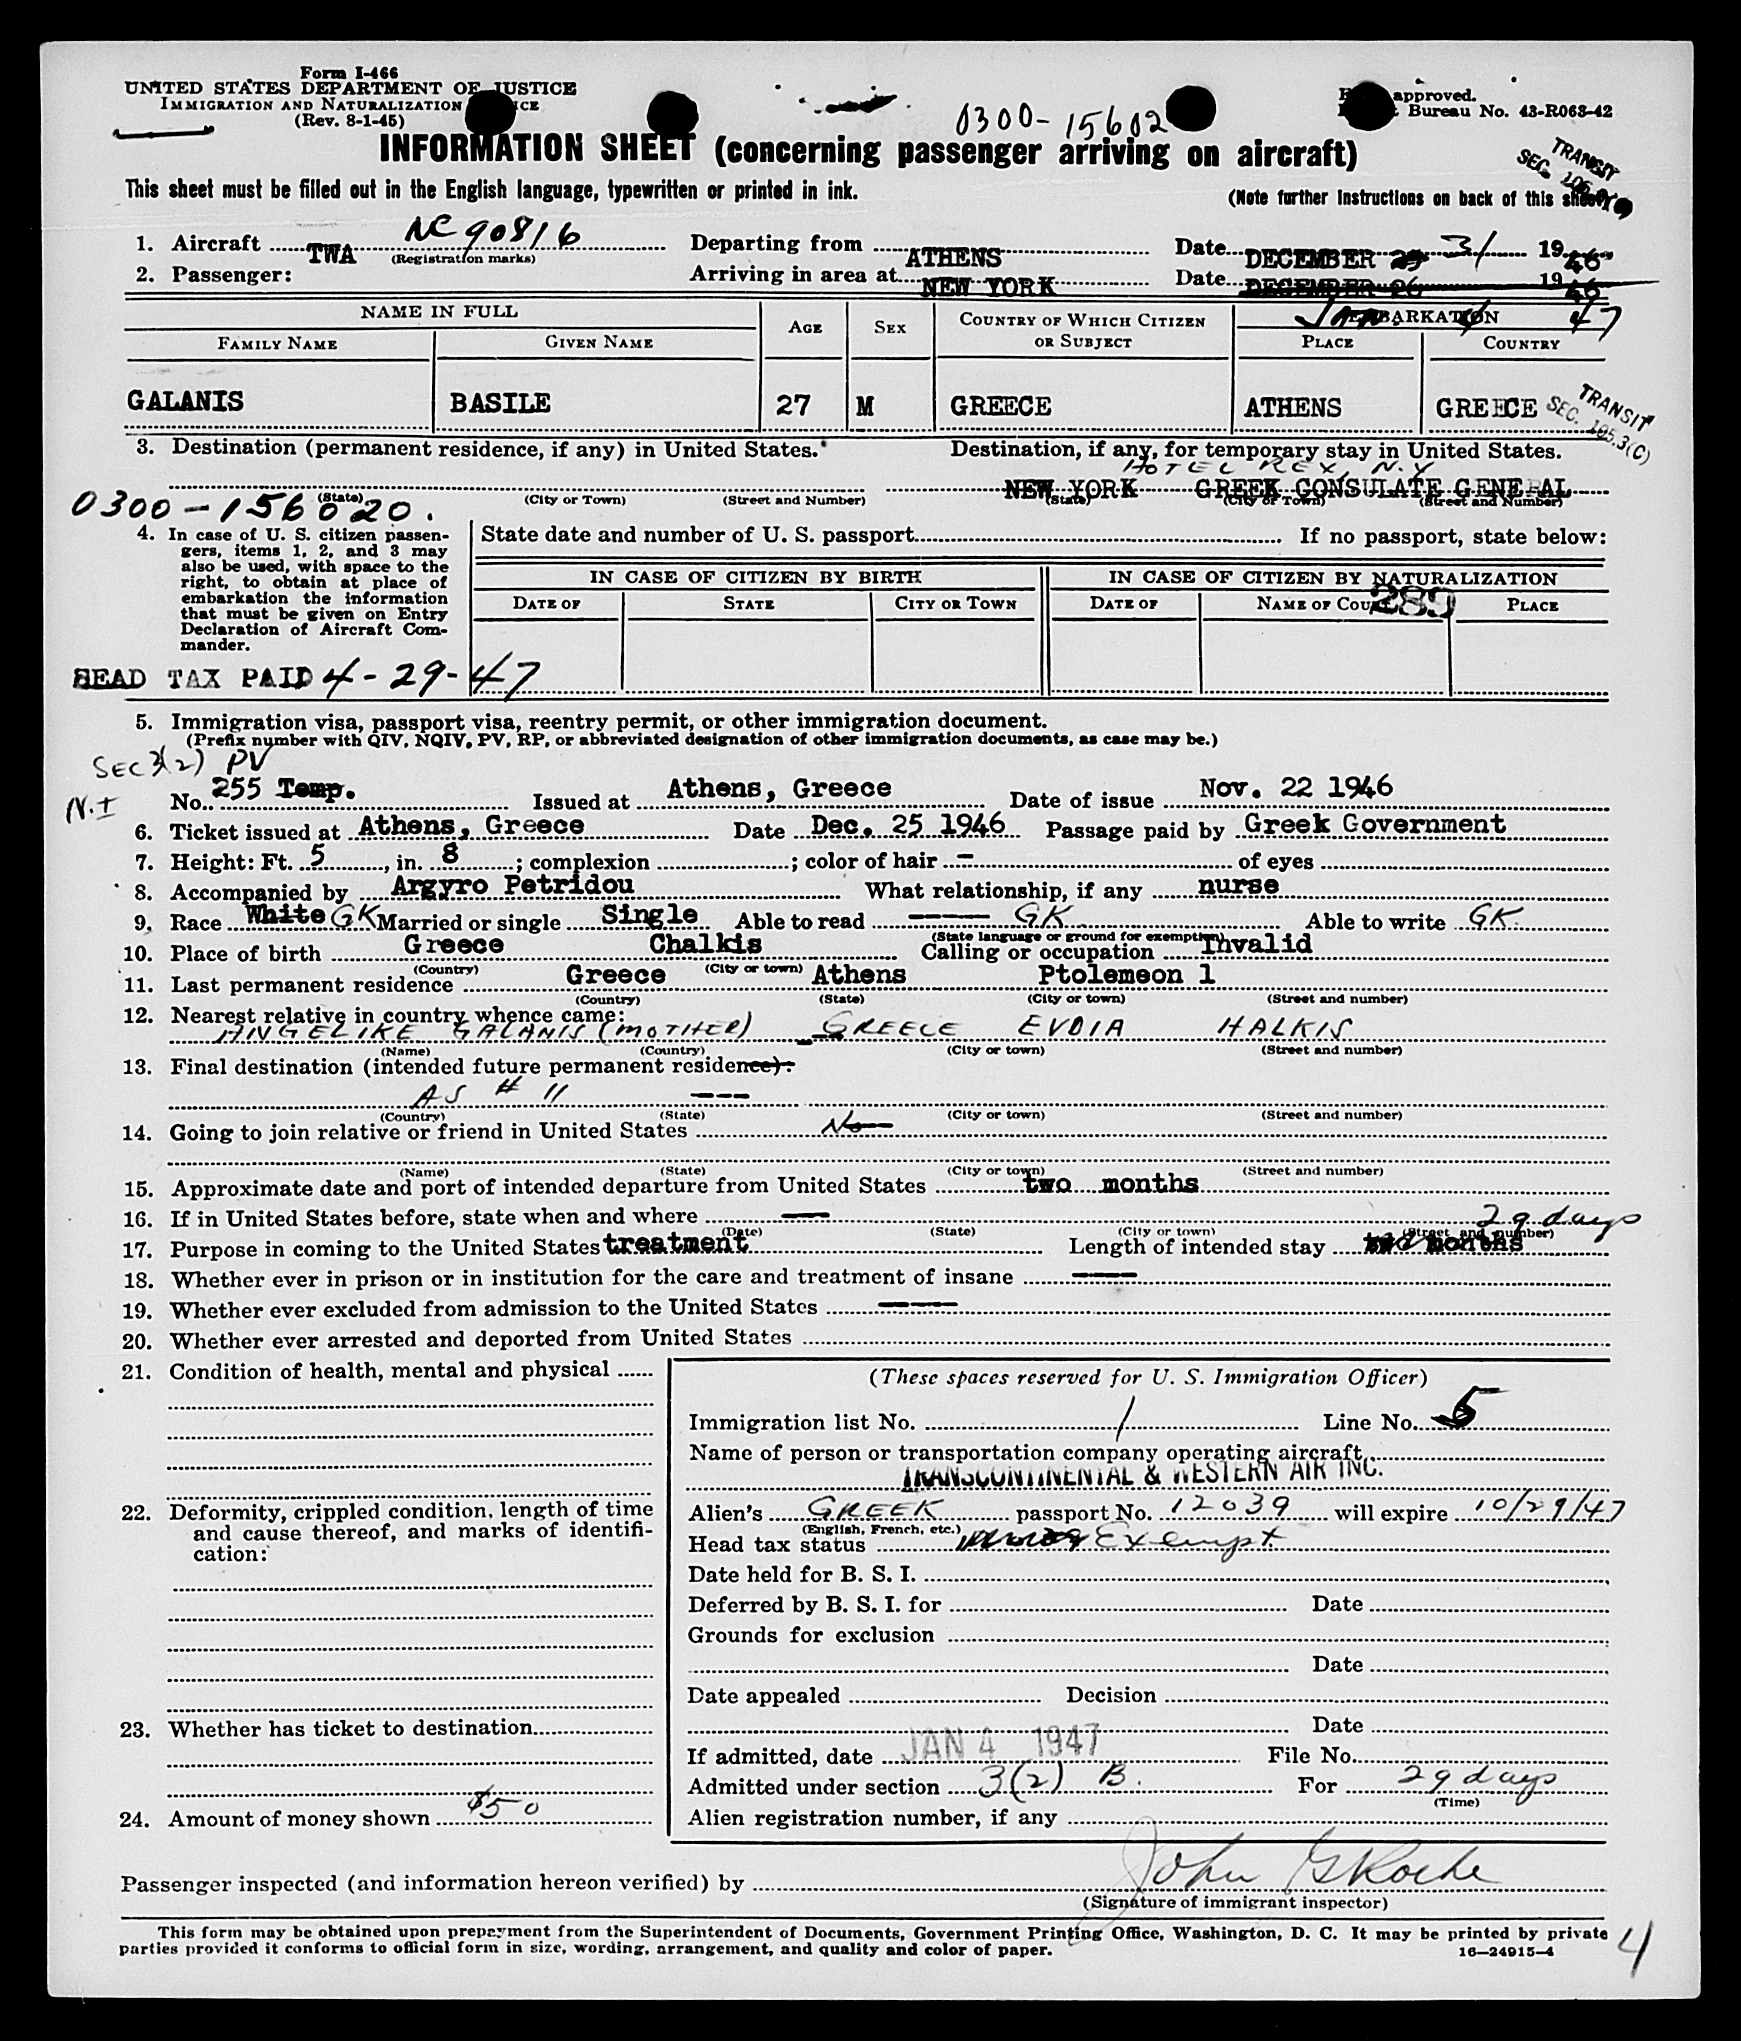 Form I-466
UNITED STATES DEPARTMENT OF JUSTICE
IMMIGRATION AND NATURALIZATION
(Rev. 8-1-45)
approved.
Bureau No. 43-R063-42
0300-15602
INFORMATION SHEET (concerning passenger arriving on aircraft)
TRANSIT
SEC.
This sheet must be filled out in the English language, typewritten or printed in ink.
(Note further instructions on back of this sheet)
1. Aircraft TWA NC 90816 Departing from ATHENS Date DECEMBER 31 1946
(Registration marks)
2. Passenger: Arriving in area at NEW YORK Date DECEMBER 26 1946
Jan 4 47
NAME IN FULL
AGE
SEX
COUNTRY OF WHICH CITIZEN OR SUBJECT
EMBARKATION
FAMILY NAME
GIVEN NAME
PLACE
COUNTRY
GALANIS BASILE 27 M GREECE ATHENS GREECE
TRANSIT
SEC. 105.3(C)
3. Destination (permanent residence, if any) in United States. Destination, if any, for temporary stay in United States.
HOTEL REX, N.Y
NEW YORK GREEK CONSULATE GENERAL
(State) (City or Town) (Street and Number) (State) (City or Town) (Street and Number)
0300-156020.
4. In case of U. S. citizen passengers, items 1, 2, and 3 may
also be used, with space to the
right, to obtain at place of
embarkation the information
that must be given on Entry
Declaration of Aircraft Commander.
State date and number of U. S. passport If no passport, state below:
IN CASE OF CITIZEN BY BIRTH
IN CASE OF CITIZEN BY NATURALIZATION
DATE OF STATE CITY OR TOWN DATE OF NAME OF COURT PLACE
289
HEAD TAX PAID 4-29-47
5. Immigration visa, passport visa, reentry permit, or other immigration document.
(Prefix number with QIV, NQIV, PV, RP, or abbreviated designation of other immigration documents, as case may be.)
SEC 3(2) PV
N.I
No. 255 Temp. Issued at Athens, Greece Date of issue Nov. 22 1946
6. Ticket issued at Athens, Greece Date Dec. 25 1946 Passage paid by Greek Government
7. Height: Ft. 5, in. 8; complexion ; color of hair - of eyes
8. Accompanied by Argyro Petridou What relationship, if any nurse
9. Race White GK Married or single Single Able to read GK Able to write GK.
(State language or ground for exemption)
10. Place of birth Greece Chalkis Calling or occupation Invalid
(Country) (City or town)
11. Last permanent residence Greece Athens Ptolemeon 1
(Country) (State) (City or town) (Street and number)
12. Nearest relative in country whence came:
ANGELIKE GALANIS (MOTHER) GREECE EVOIA HALKIS
(Name) (Country) (City or town) (Street and number)
13. Final destination (intended future permanent residence):
AS # 11 ---
(Country) (State) (City or town) (Street and number)
14. Going to join relative or friend in United States No
(Name) (State) (City or town) (Street and number)
15. Approximate date and port of intended departure from United States two months
16. If in United States before, state when and where ---
(Date) (State) (City or town) (Street and number)
29 days
17. Purpose in coming to the United States treatment Length of intended stay two months
18. Whether ever in prison or in institution for the care and treatment of insane ----
19. Whether ever excluded from admission to the United States ----
20. Whether ever arrested and deported from United States
21. Condition of health, mental and physical
22. Deformity, crippled condition, length of time
and cause thereof, and marks of identification:
23. Whether has ticket to destination
24. Amount of money shown $50
(These spaces reserved for U. S. Immigration Officer)
Immigration list No. 1 Line No. 5
Name of person or transportation company operating aircraft
TRANSCONTINENTAL & WESTERN AIR INC.
Alien's GREEK passport No. 12039 will expire 10/29/47
(English, French, etc.)
Head tax status Exempt
Date held for B. S. I.
Deferred by B. S. I. for Date
Grounds for exclusion
Date
Date appealed Decision
Date
If admitted, date JAN 4 1947 File No.
Admitted under section 3(2) B. For 29 days
(Time)
Alien registration number, if any
Passenger inspected (and information hereon verified) by John G Roche
(Signature of immigrant inspector)
This form may be obtained upon prepayment from the Superintendent of Documents, Government Printing Office, Washington, D. C. It may be printed by private
parties provided it conforms to official form in size, wording, arrangement, and quality and color of paper.
16—24915-4
4